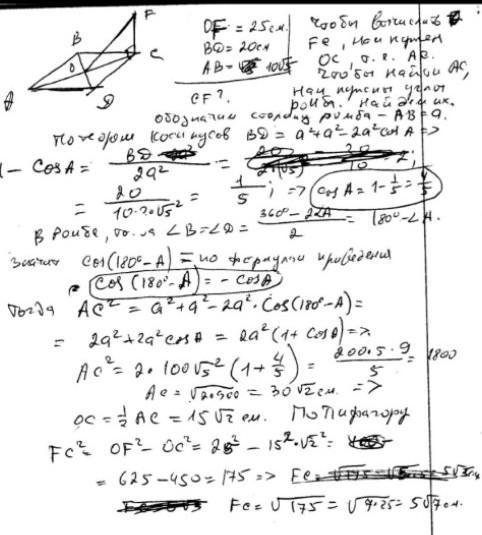 F
OF = 25 см.
Чтобы вычислить
B
BD = 20 см
FC, нам нужен
O
C
AB = 10√5
OC, т.е. AC.
Чтобы найти AC,
A
D
CF?
нам нужны углы
ромба. Найдем их.
обозначим сторону ромба - AB = a.
По теорем косинусов BD = a²+a² 2a² cos A =>
1 - cos A = BD / 2a² =
= 20 / 10·20√5² = 1/5; => cos A = 1 - 1/5 = 4/5
В ромбе, ∠B = ∠D = 360° - 2∠A / 2 = 180° - ∠A.
Значит cos(180° - A) = по формулам приведения
cos(180° - A) = - cos A
Тогда AC² = a² + a² - 2a² · cos(180° - A) =
= 2a² + 2a² cos A = 2a² (1 + cos A) =>
AC² = 2 · 100√5² (1 + 4/5) = 200 · 5 · 9 / 5 = 1800
AC = √2·900 = 30√2 см. =>
OC = ½ AC = 15√2 см. По Пифагору
FC² = OF² - OC² = 25² - 15² · √2² =
= 625 - 450 = 175 => FC = √175
FC = √175 = √7·25 = 5√7 см.